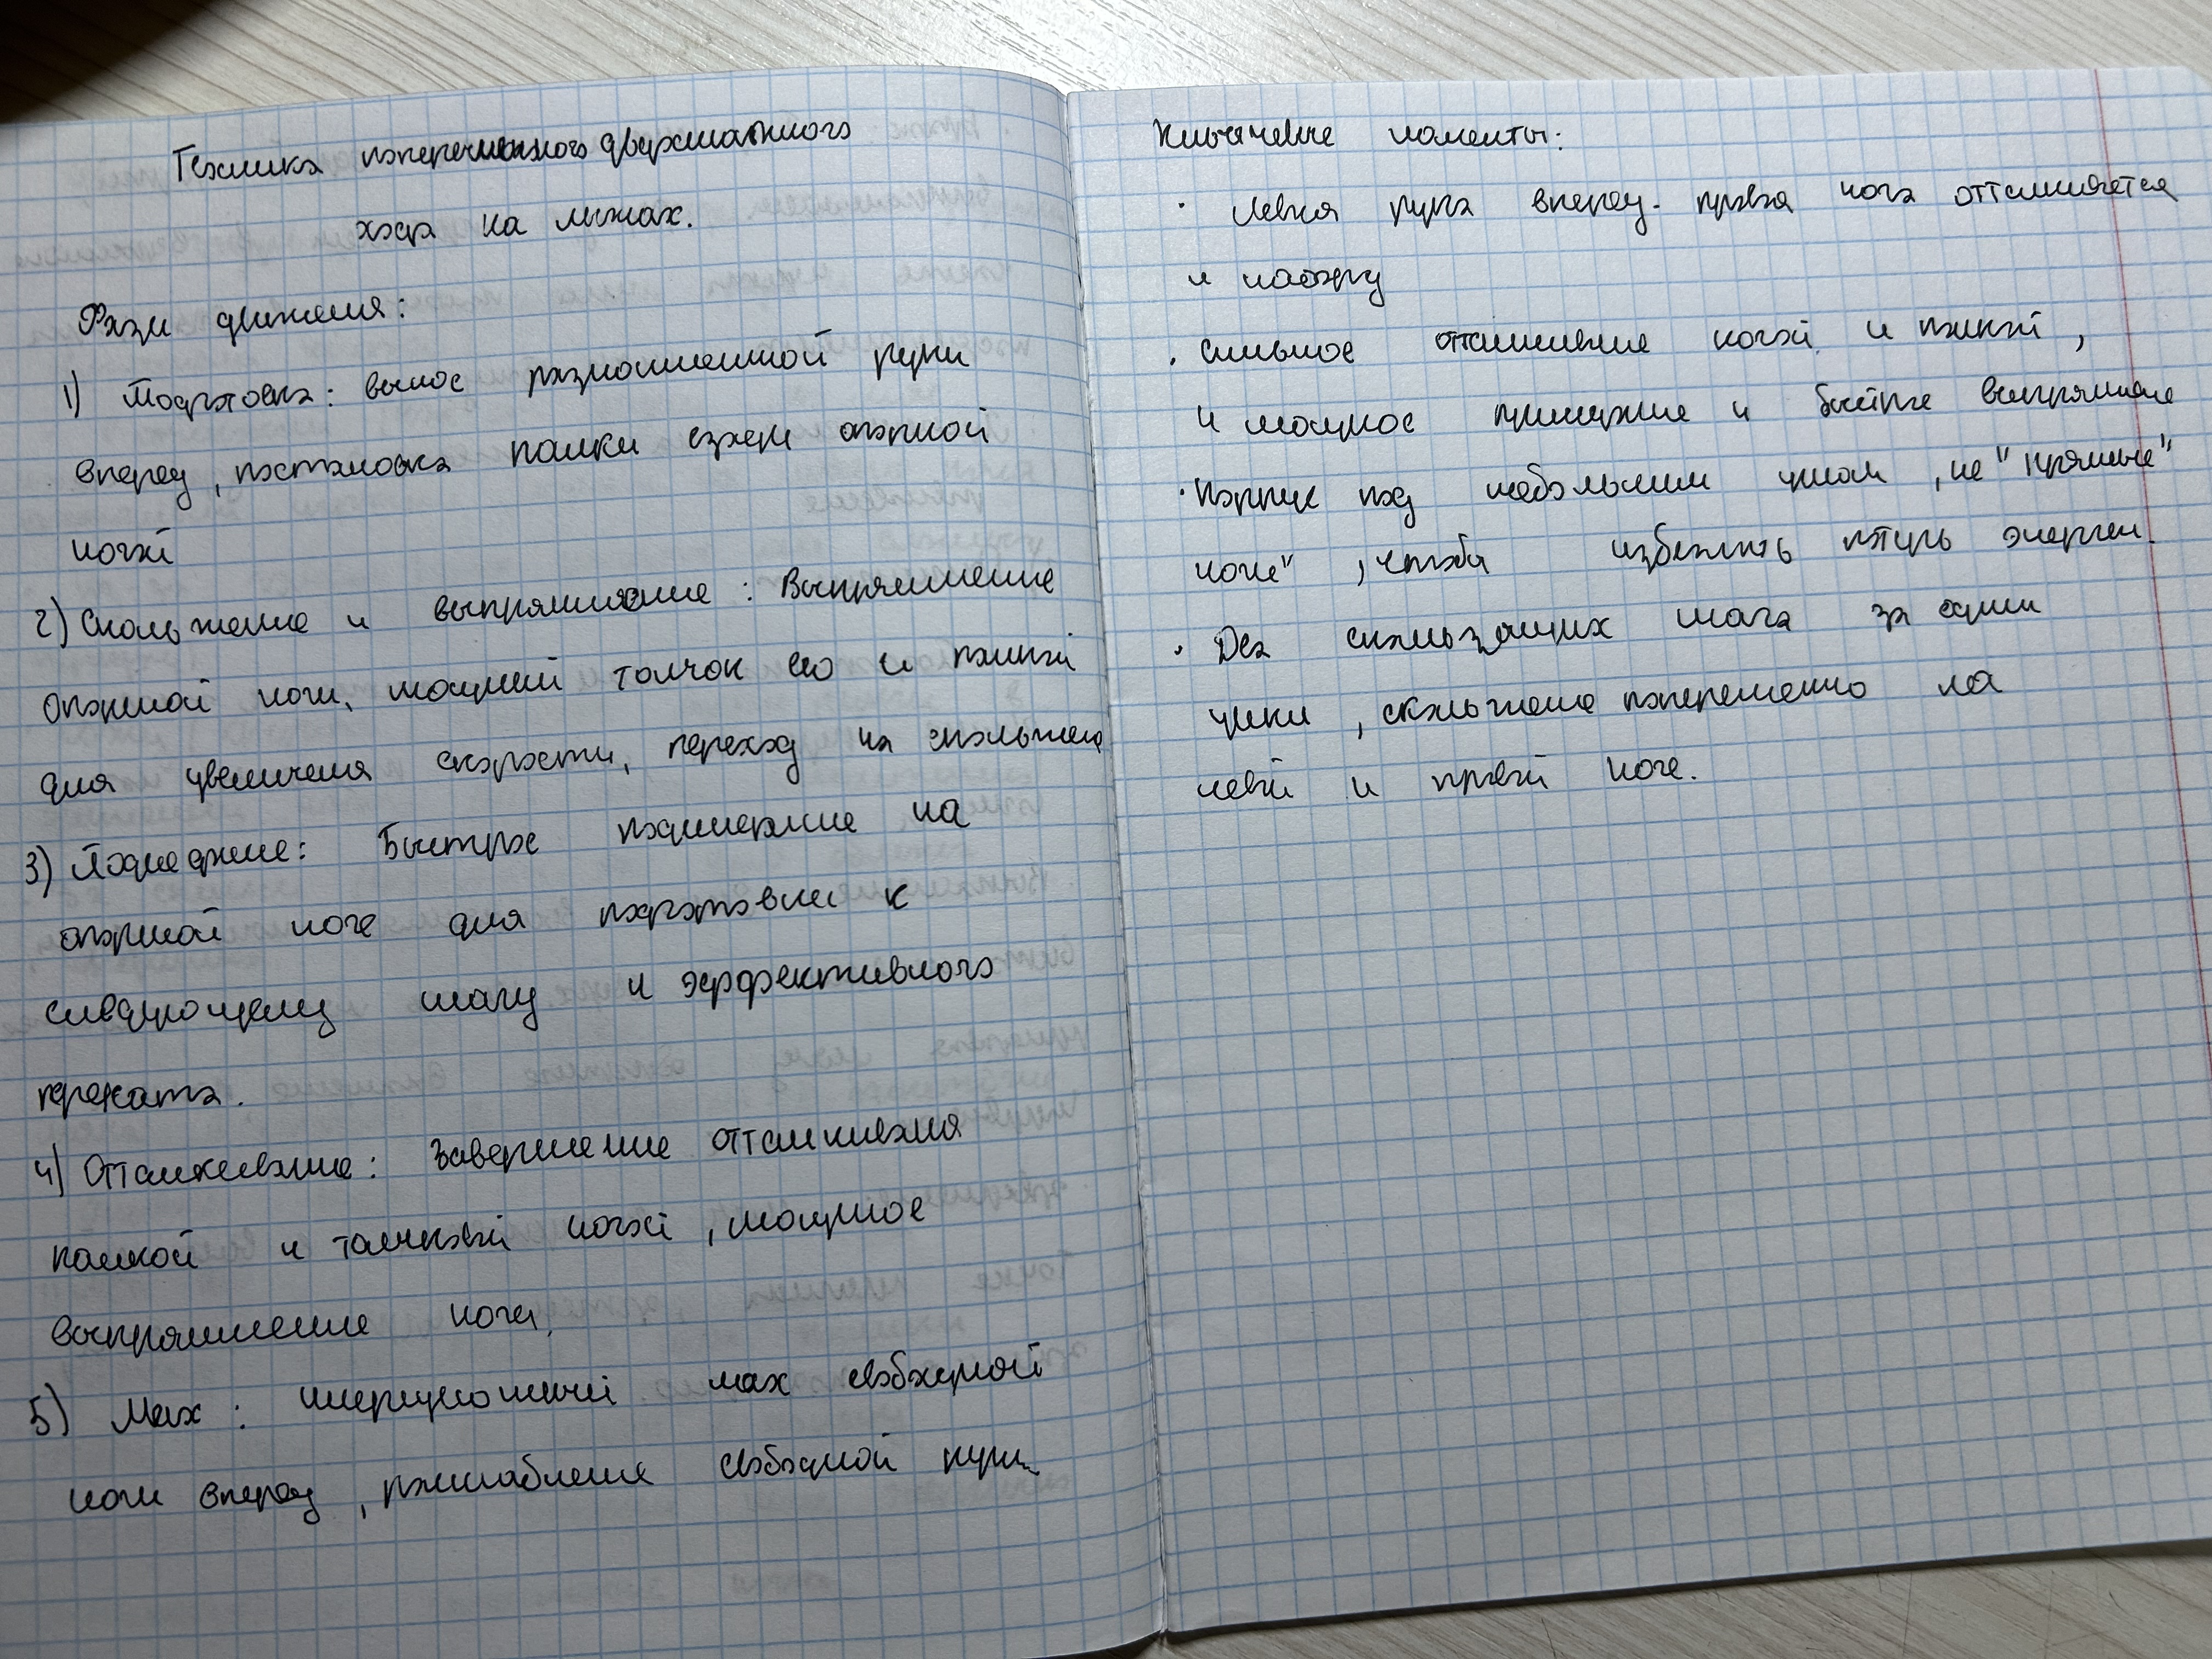 Техника попеременного двухшажного
хода на лыжах.
Фазы движения:
1) Подготовка: вынос разноименной руки
вперед, постановка палки сзади опорной
ногой
2) Скольжение и выпрямление: Выпрямление
опорной ноги, мощный толчок ею и палкой
для увеличения скорости, переход на скольжение
3) Подседание: Быстрое подседание на
опорной ноге для подготовки к
следующему шагу и эффективного
переката.
4) Отталкивание: Завершение отталкивания
палкой и толчковой ногой, мощное
выпрямление ноги.
5) Мах: инерционный мах свободной
ноги вперед, расслабление свободной руки
Ключевые моменты:
· Левая рука вперед - правая нога отталкивается
и наоборот
· Сильное отталкивание ногой и палкой,
и мощное приседание и быстрое выпрямление
· Корпус под небольшим углом, не "прямые"
ноги", чтобы избежать потерь энергии.
· Два скользящих шага за один
цикл, скольжение попеременно на
левой и правой ноге.